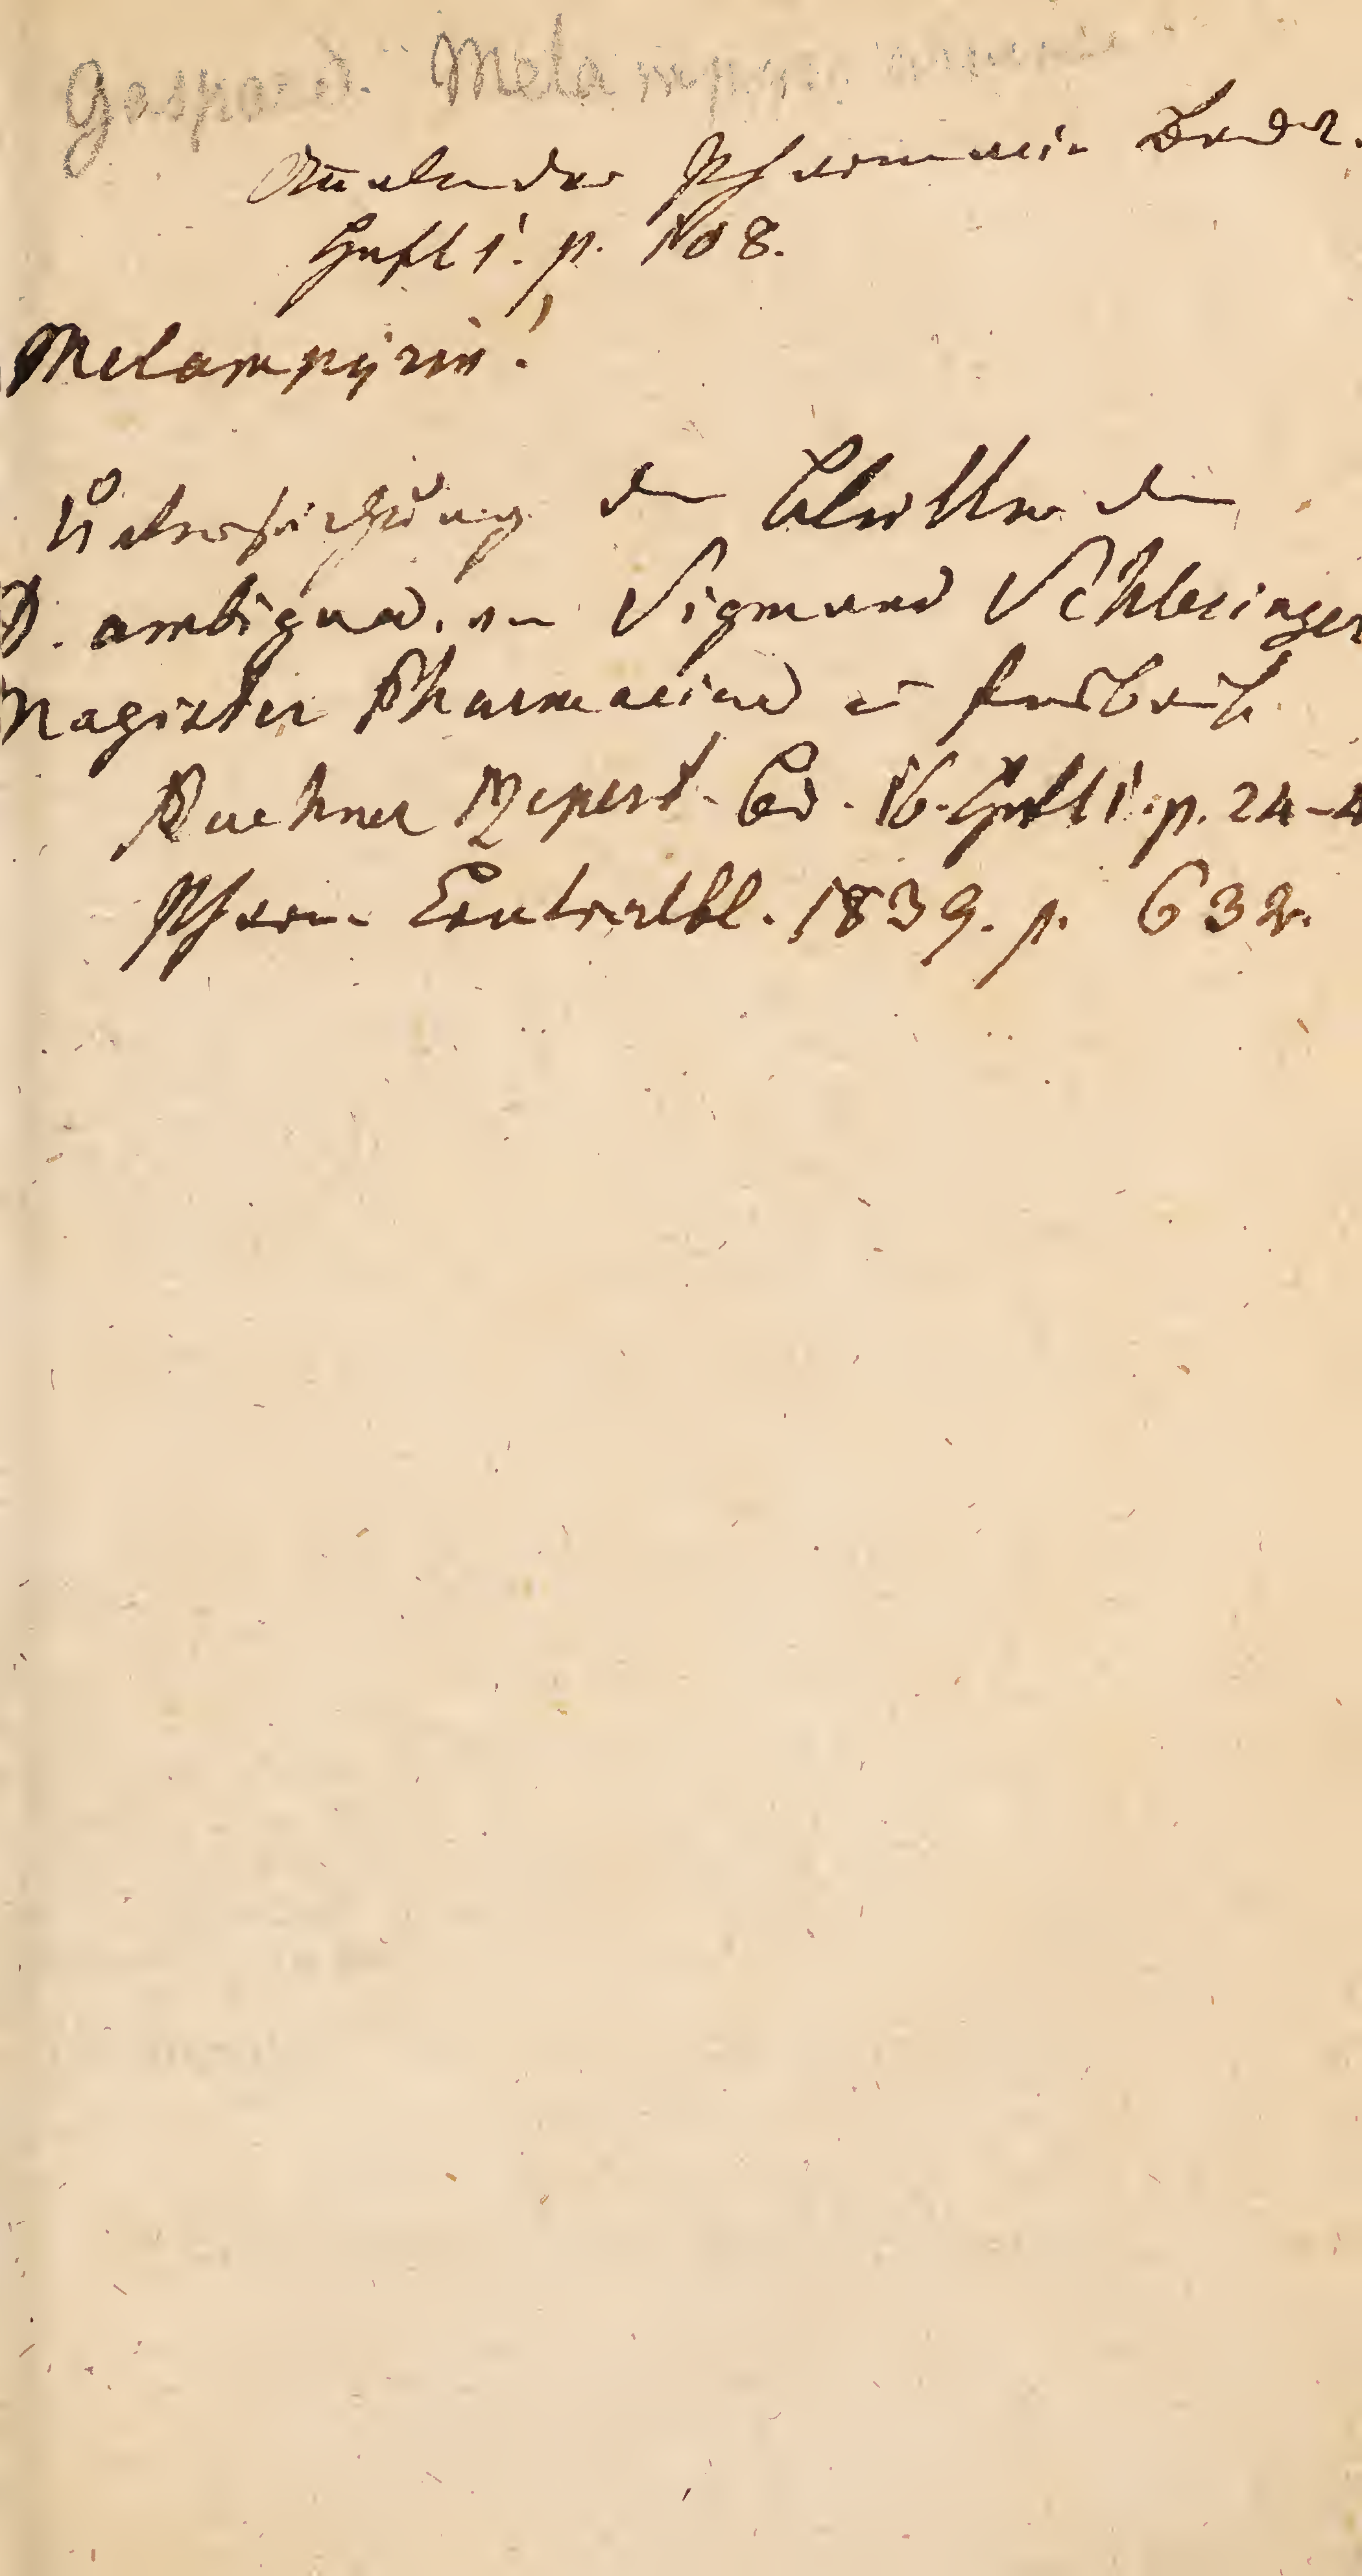 Gaspard. Melampyrum
Annalen der Pharmacie
Heft 1. p. 108.
Melampyrin!
Untersuchung der Blätter der
D. ambigua. von Sigmund Schlesinger
Magister Pharmaciae in
Buchner Repert. Bd. 16. Heft 1. p. 24-4
Pharm Centralbl. 1839. p. 632.